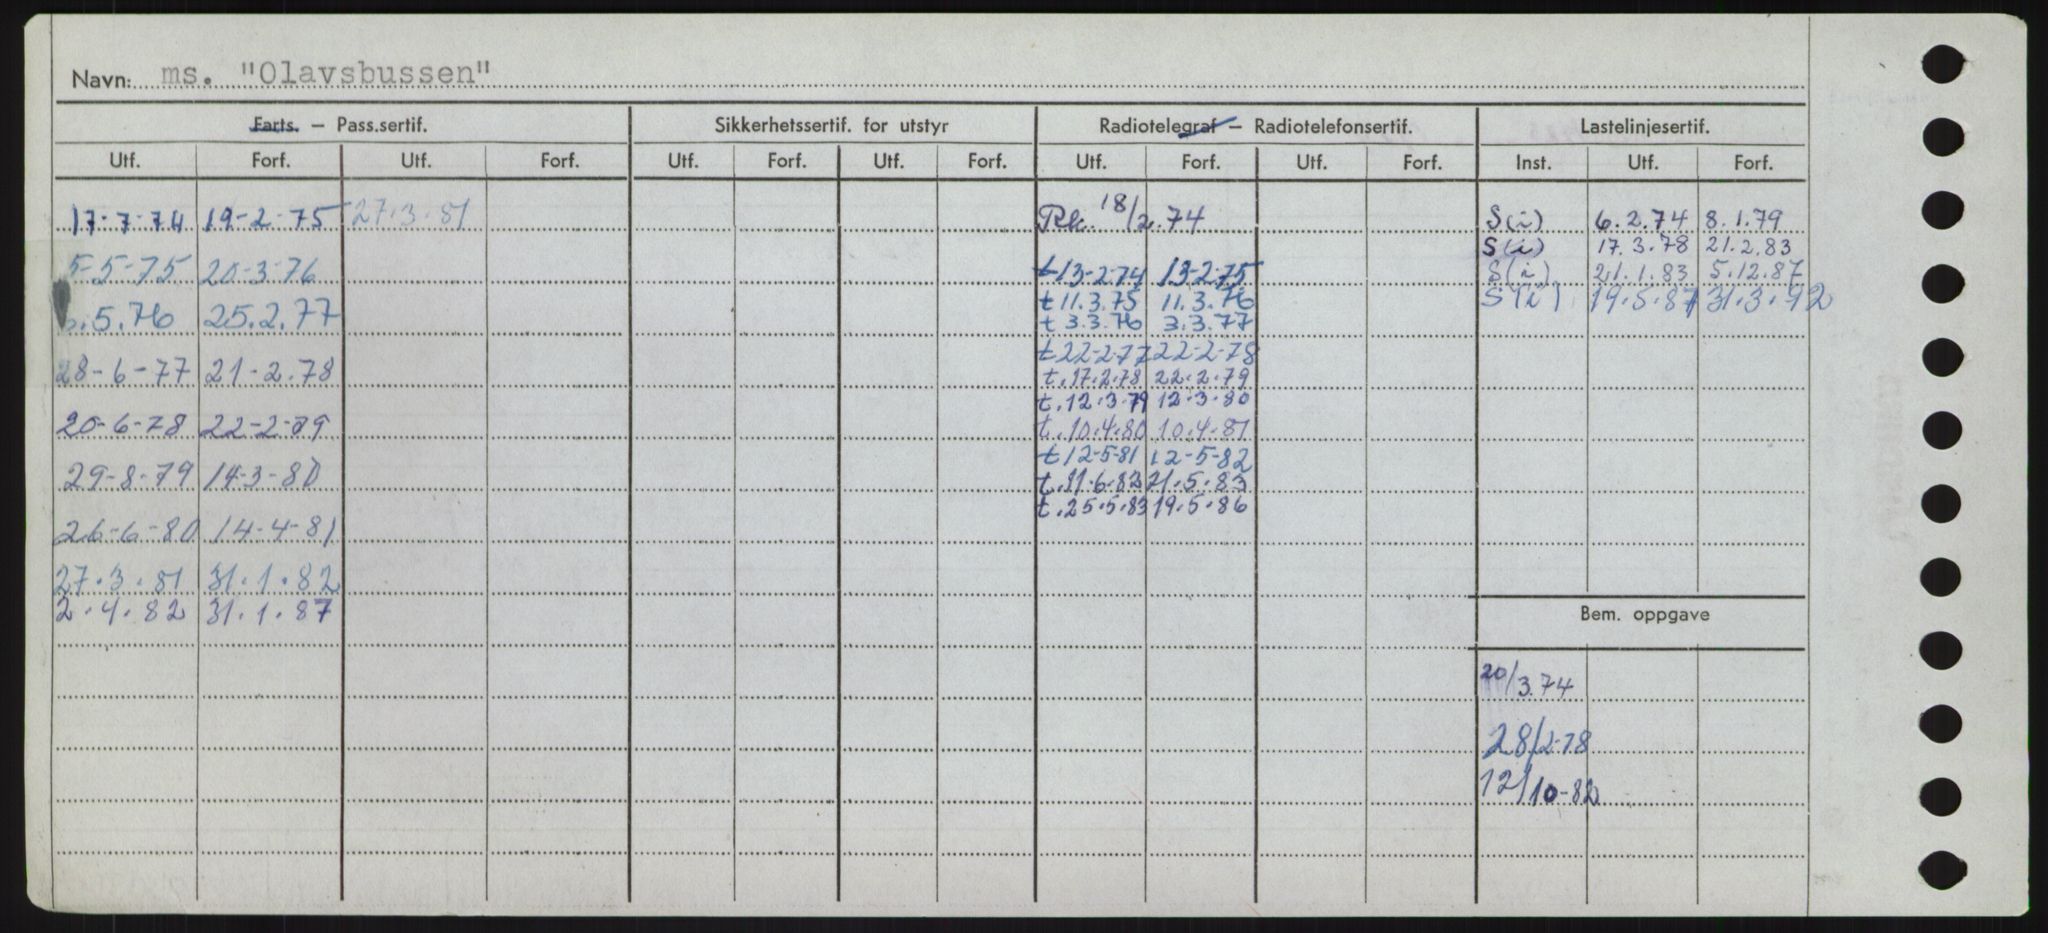 Navn: ms. "Olavsbussen"
Farts. — Pass.sertif. Sikkerhetssertif. for utstyr Radiotelegraf — Radiotelefonsertif. Lastelinjesertif.
Utf. Forf. Utf. Forf. Utf. Forf. Utf. Forf. Utf. Forf. Utf. Forf. Inst. Utf. Forf.
17-7-74 19-2-75 27.3.81 Rk. 18/2.74 S(i) 6.2.74 8.1.79
S(i) 17.3.78 21.2.83
5-5-75 20-3-76 t 13-2-74 13-2-75 S(i) 21.1.83 5.12.87
t 11.3.75 11.3.76 S(i) 19.5.87 31.3.92
.5.76 25.2.77 t 3.3.76 3.3.77
t 22-2-77 22-2-78
28-6-77 21-2.78 t.17.2.78 22.2.79
t.12.3.79 12.3.80
20-6-78 22-2-79 t.10.4.80 10.4.81
t 12-5-81 12-5-82
29-8-79 14-3-80 t.11.6.82 21.5.83
t.25.5.83 19.5.86
26-6-80 14-4-81
27.3.81 31.1.82
2.4.82 31.1.87
Bem. oppgave
20/3.74
28/2-78
12/10-82